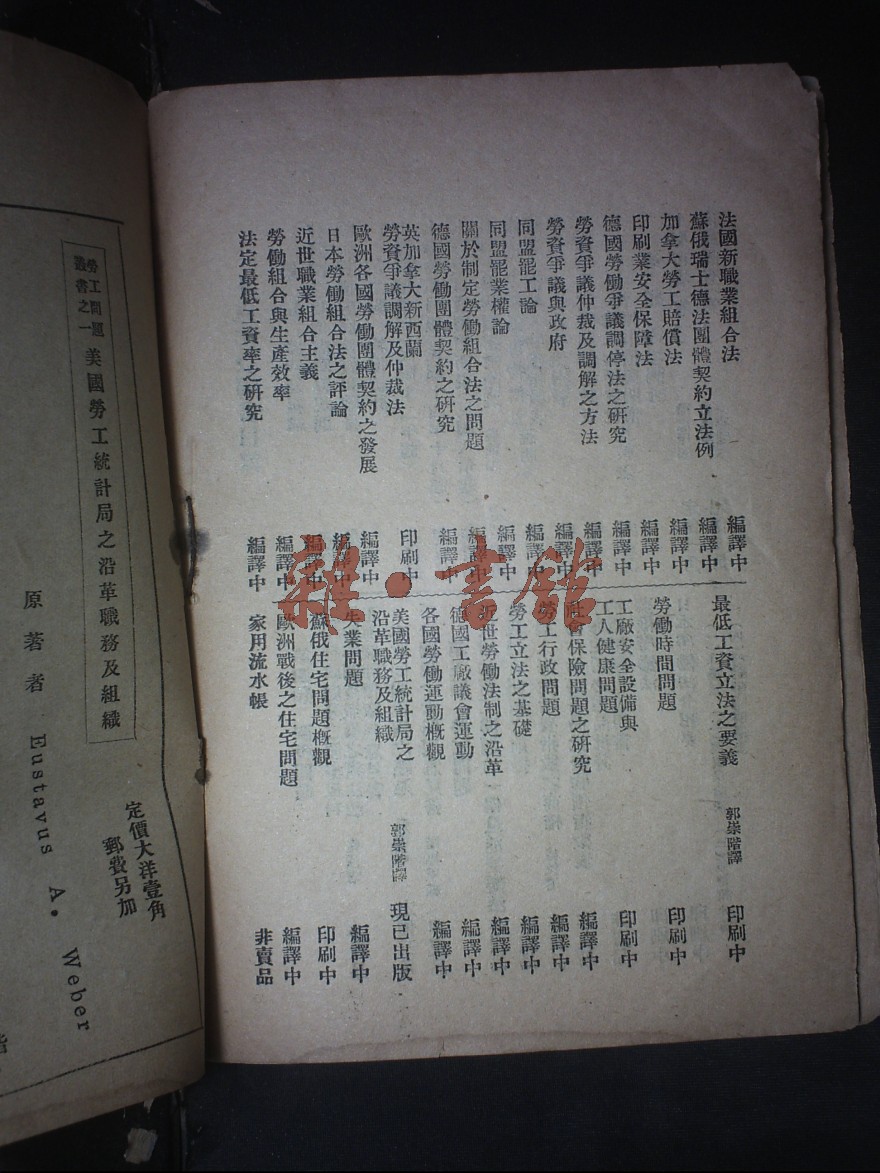 法國新職業組合法 編譯中
蘇俄瑞士德法團體契約立法例 編譯中
加拿大勞工賠償法 編譯中
印刷業安全保障法 編譯中
德國勞働爭議調停法之研究 編譯中
勞資爭議仲裁及調解之方法 編譯中
勞資爭議與政府 編譯中
同盟罷工論 編譯中
同盟罷業權論 編譯中
關於制定勞働組合法之問題 編譯中
德國勞働團體契約之研究 編譯中
英加拿大新西蘭
勞資爭議調解及仲裁法 印刷中
歐洲各國勞働團體契約之發展 編譯中
日本勞働組合法之評論 編譯中
近世職業組合主義 編譯中
勞働組合與生產效率 編譯中
法定最低工資率之研究 編譯中
最低工資立法之要義 郭崇階譯 印刷中
勞働時間問題 印刷中
工廠安全設備與
工人健康問題 印刷中
社會保險問題之研究 編譯中
勞工行政問題 編譯中
勞工立法之基礎 編譯中
近世勞働法制之沿革 編譯中
德國工廠議會運動 編譯中
各國勞働運動概觀 編譯中
美國勞工統計局之
沿革職務及組織 郭崇階譯 現已出版
失業問題 編譯中
蘇俄住宅問題概觀 印刷中
歐洲戰後之住宅問題 編譯中
家用流水帳 非賣品
雜·書館
定價大洋壹角
郵費另加
勞工問題
叢書之一
美國勞工統計局之沿革職務及組織
原著者 Eustavus A. Weber